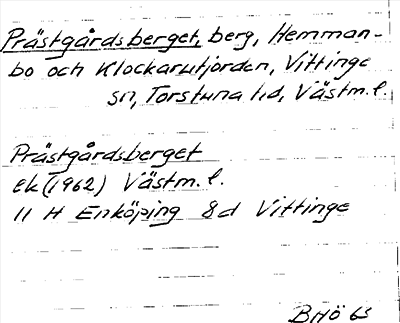 Prästgårdsberget, berg, Hemman-
bo och Klockarutjorden, Vittinge
sn, Torstuna hd, Västm. l.
Prästgårdsberget
Ek (1962) Västm. l.
11 H Enköping 8d Vittinge
BHÖ 63